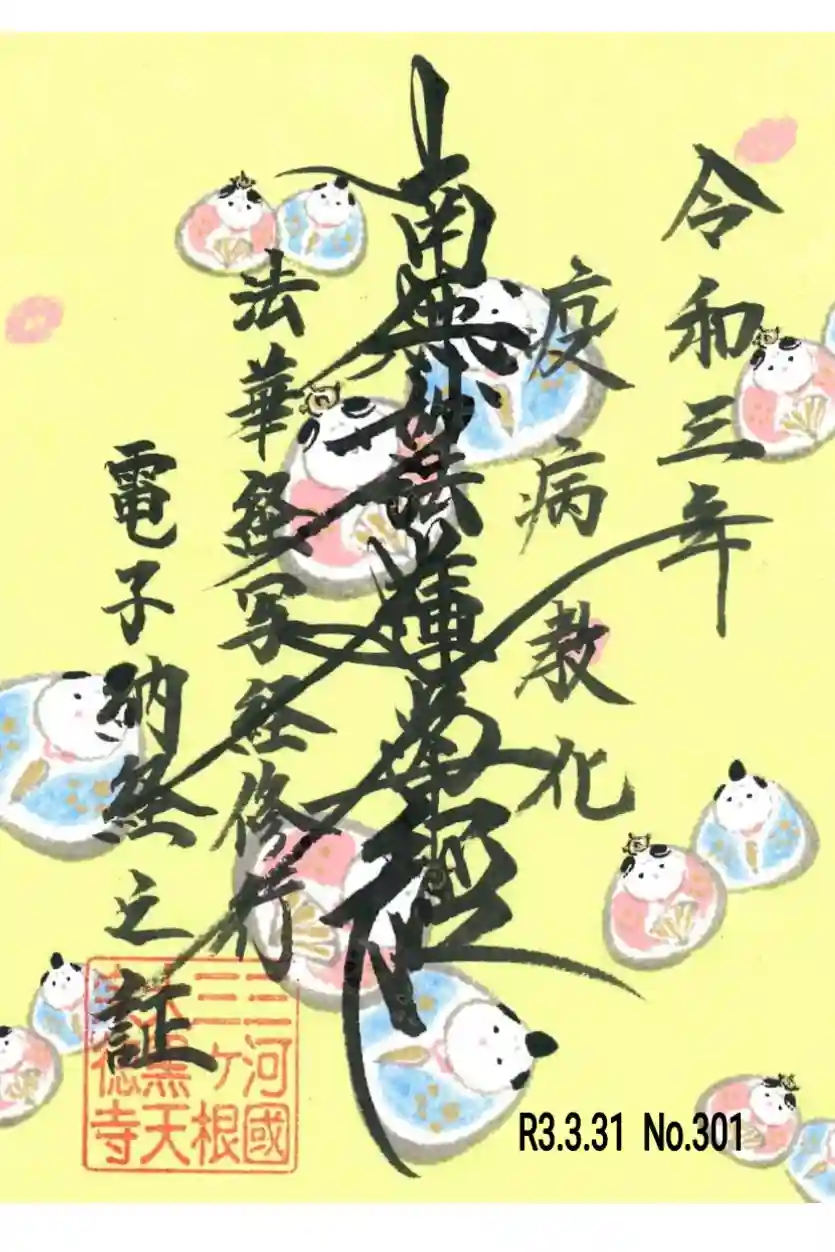 令和三年
疫病教化
南無妙法蓮華経
法華経写経修行
電子納経之証
三河國
三ヶ根
大黒天
徳寺
R3.3.31 No.301